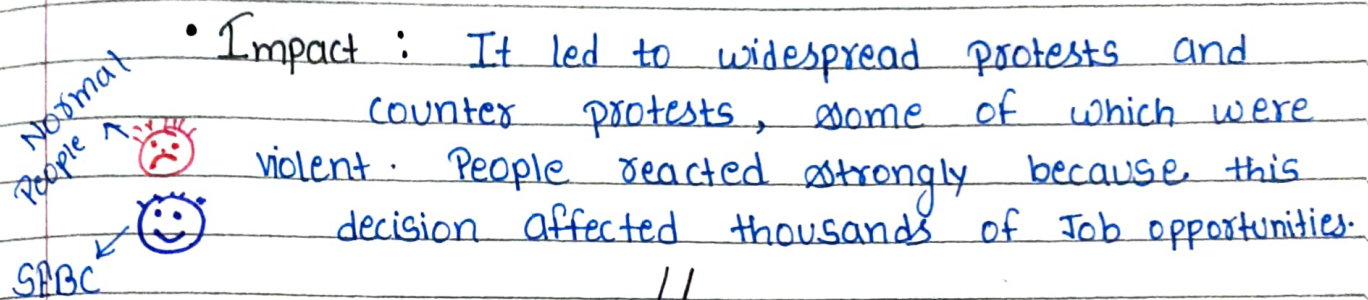 • Impact : It led to widespread protests and
counter protests, some of which were
violent. People reacted strongly because this
decision affected thousands of Job opportunities.
Normal
People
SEBC
//